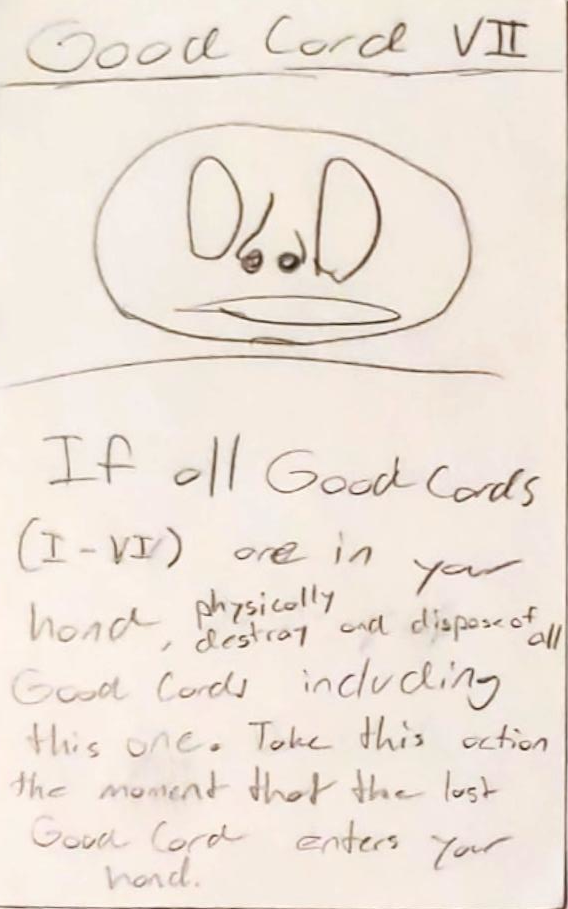 Good Card VII
If all Good Cards
(I-VI) are in your
hand, physically destroy and dispose of all
Good Cards including
this one. Take this action
the moment that the last
Good Card enters your
hand.